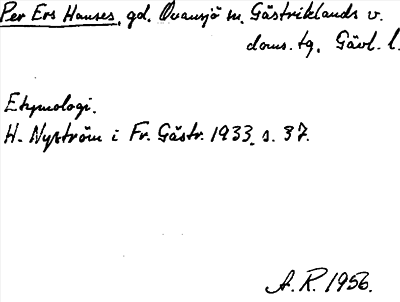 Per Ers Hanses, gd. Ovansjö sn. Gästriklands v.
doms. tg, Gävl. l.
Etymologi.
H. Nyström i Fr. Gästr. 1933, s. 37.
A. R. 1956.